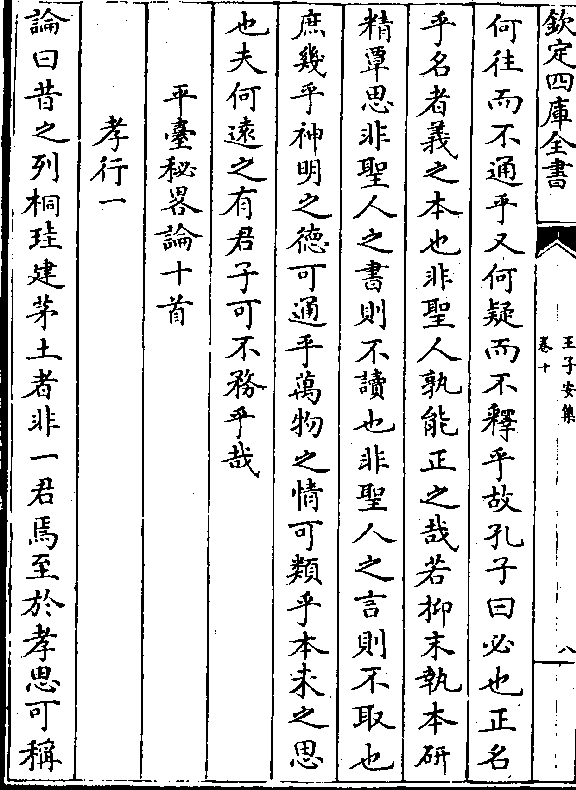 欽定四庫全書
王子安集
卷十
八
何往而不通乎又何疑而不釋乎故孔子曰必也正名
乎名者義之本也非聖人孰能正之哉若抑末執本研
精覃思非聖人之書則不讀也非聖人之言則不取也
庶幾乎神明之德可通乎萬物之情可類乎本末之思
也夫何遠之有君子可不務乎哉
平臺秘畧論十首
孝行一
論曰昔之列桐珪建茅土者非一君焉至於孝思可稱